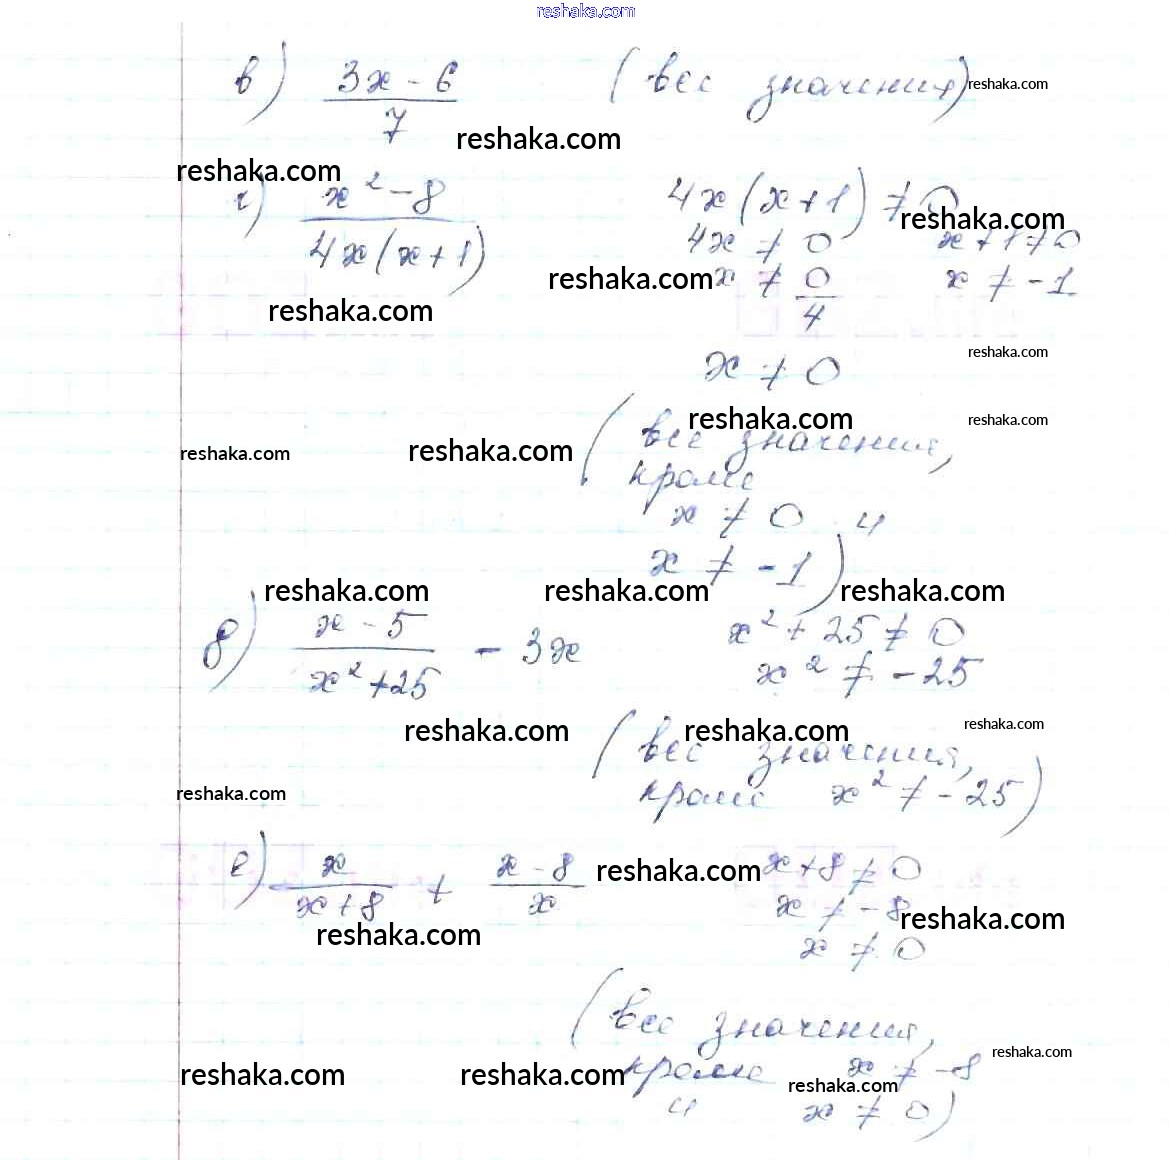 reshaka.com
в) 3x - 6 / 7 (все значения) reshaka.com
reshaka.com
reshaka.com
г) x² - 8 / 4x(x+1) 4x(x+1) ≠ 0
reshaka.com
4x ≠ 0 x+1 ≠ 0
reshaka.com x ≠ 0/4 x ≠ -1
reshaka.com
x ≠ 0 reshaka.com
reshaka.com reshaka.com
(все значения,
reshaka.com reshaka.com
кроме
x ≠ 0 и
x ≠ -1)
reshaka.com reshaka.com reshaka.com
д) x - 5 / x² + 25 - 3x x² + 25 ≠ 0
x² ≠ -25
reshaka.com reshaka.com reshaka.com
(все значения,
reshaka.com кроме x² ≠ -25)
е) x / x+8 + x - 8 / x reshaka.com x+8 ≠ 0
x ≠ -8 reshaka.com
reshaka.com x ≠ 0
(все значения,
reshaka.com
reshaka.com reshaka.com кроме x ≠ -8
reshaka.com
и x ≠ 0)